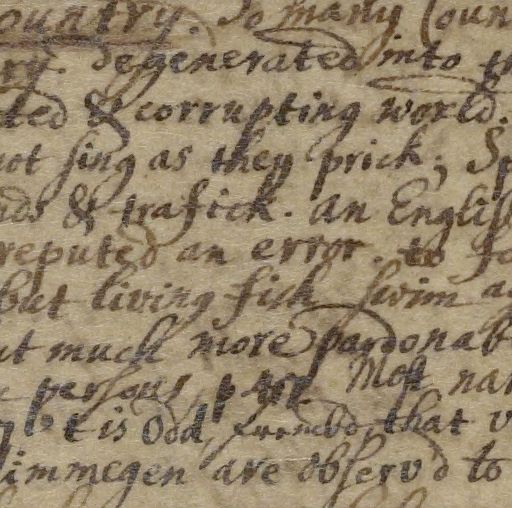 ountry. So many Coun
ry. degenerated into th
ted & corrupting world.
not sing as they prick; Sp
nds & trafick. An Englis
reputed an error. to fo
but living fish swim ag
ut much more pardonab
persons, p. Most nar
it is Odd, that v
immegen are observ'd to